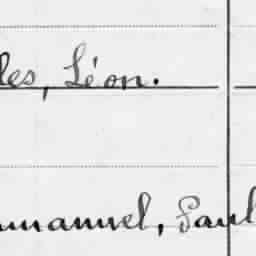 les, Léon.
mmanuel, Paul